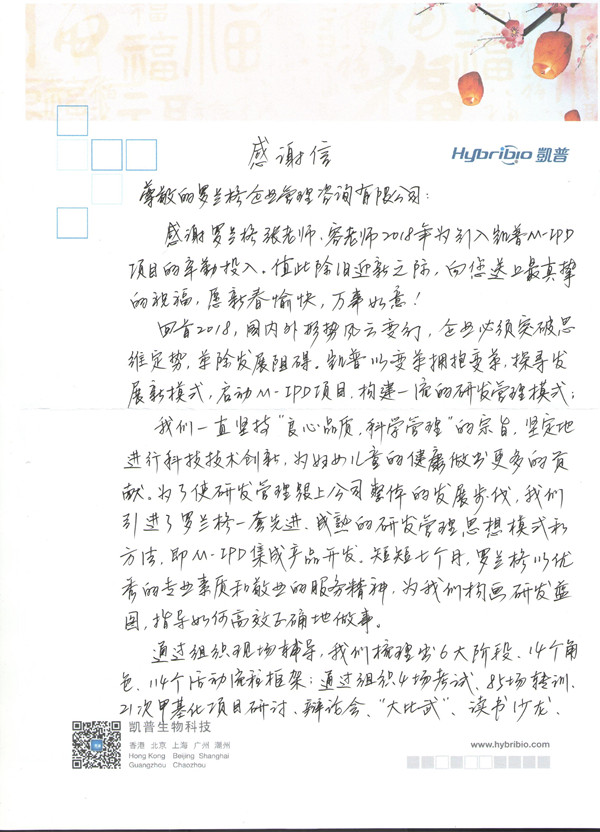 感谢信
Hybribio 凯普
尊敬的罗兰格企业管理咨询有限公司:
感谢罗兰格张老师、容老师2018年为引入凯普M-IPD
项目的辛勤投入。值此除旧迎新之际,向您送上最真挚
的祝福,愿新春愉快,万事如意!
回首2018,国内外形势风云变幻,企业必须突破思
维定势,革除发展阻碍。凯普以变革拥抱变革,探寻发
展新模式,启动M-IPD项目,构建一流的研发管理模式;
我们一直坚持"良心品质,科学管理"的宗旨,坚定地
进行科技技术创新,为妇女儿童的健康做出更多的贡
献。为了使研发管理跟上公司整体的发展步伐,我们
引进了罗兰格一套先进、成熟的研发管理思想模式和
方法,即M-IPD集成产品开发。短短七个月,罗兰格以优
秀的专业素质和敬业的服务精神,为我们构画研发蓝
图,指导如何高效正确地做事。
通过组织现场辅导,我们梳理出6大阶段、14个角
色、114个活动流程框架;通过组织4场考试、85场转训、
21次甲基化项目研讨、辩论会、"大比武"、读书沙龙、
凯普生物科技
香港 北京 上海 广州 潮州
Hong Kong Beijing Shanghai
Guangzhou Chaozhou
www.hybribio.com